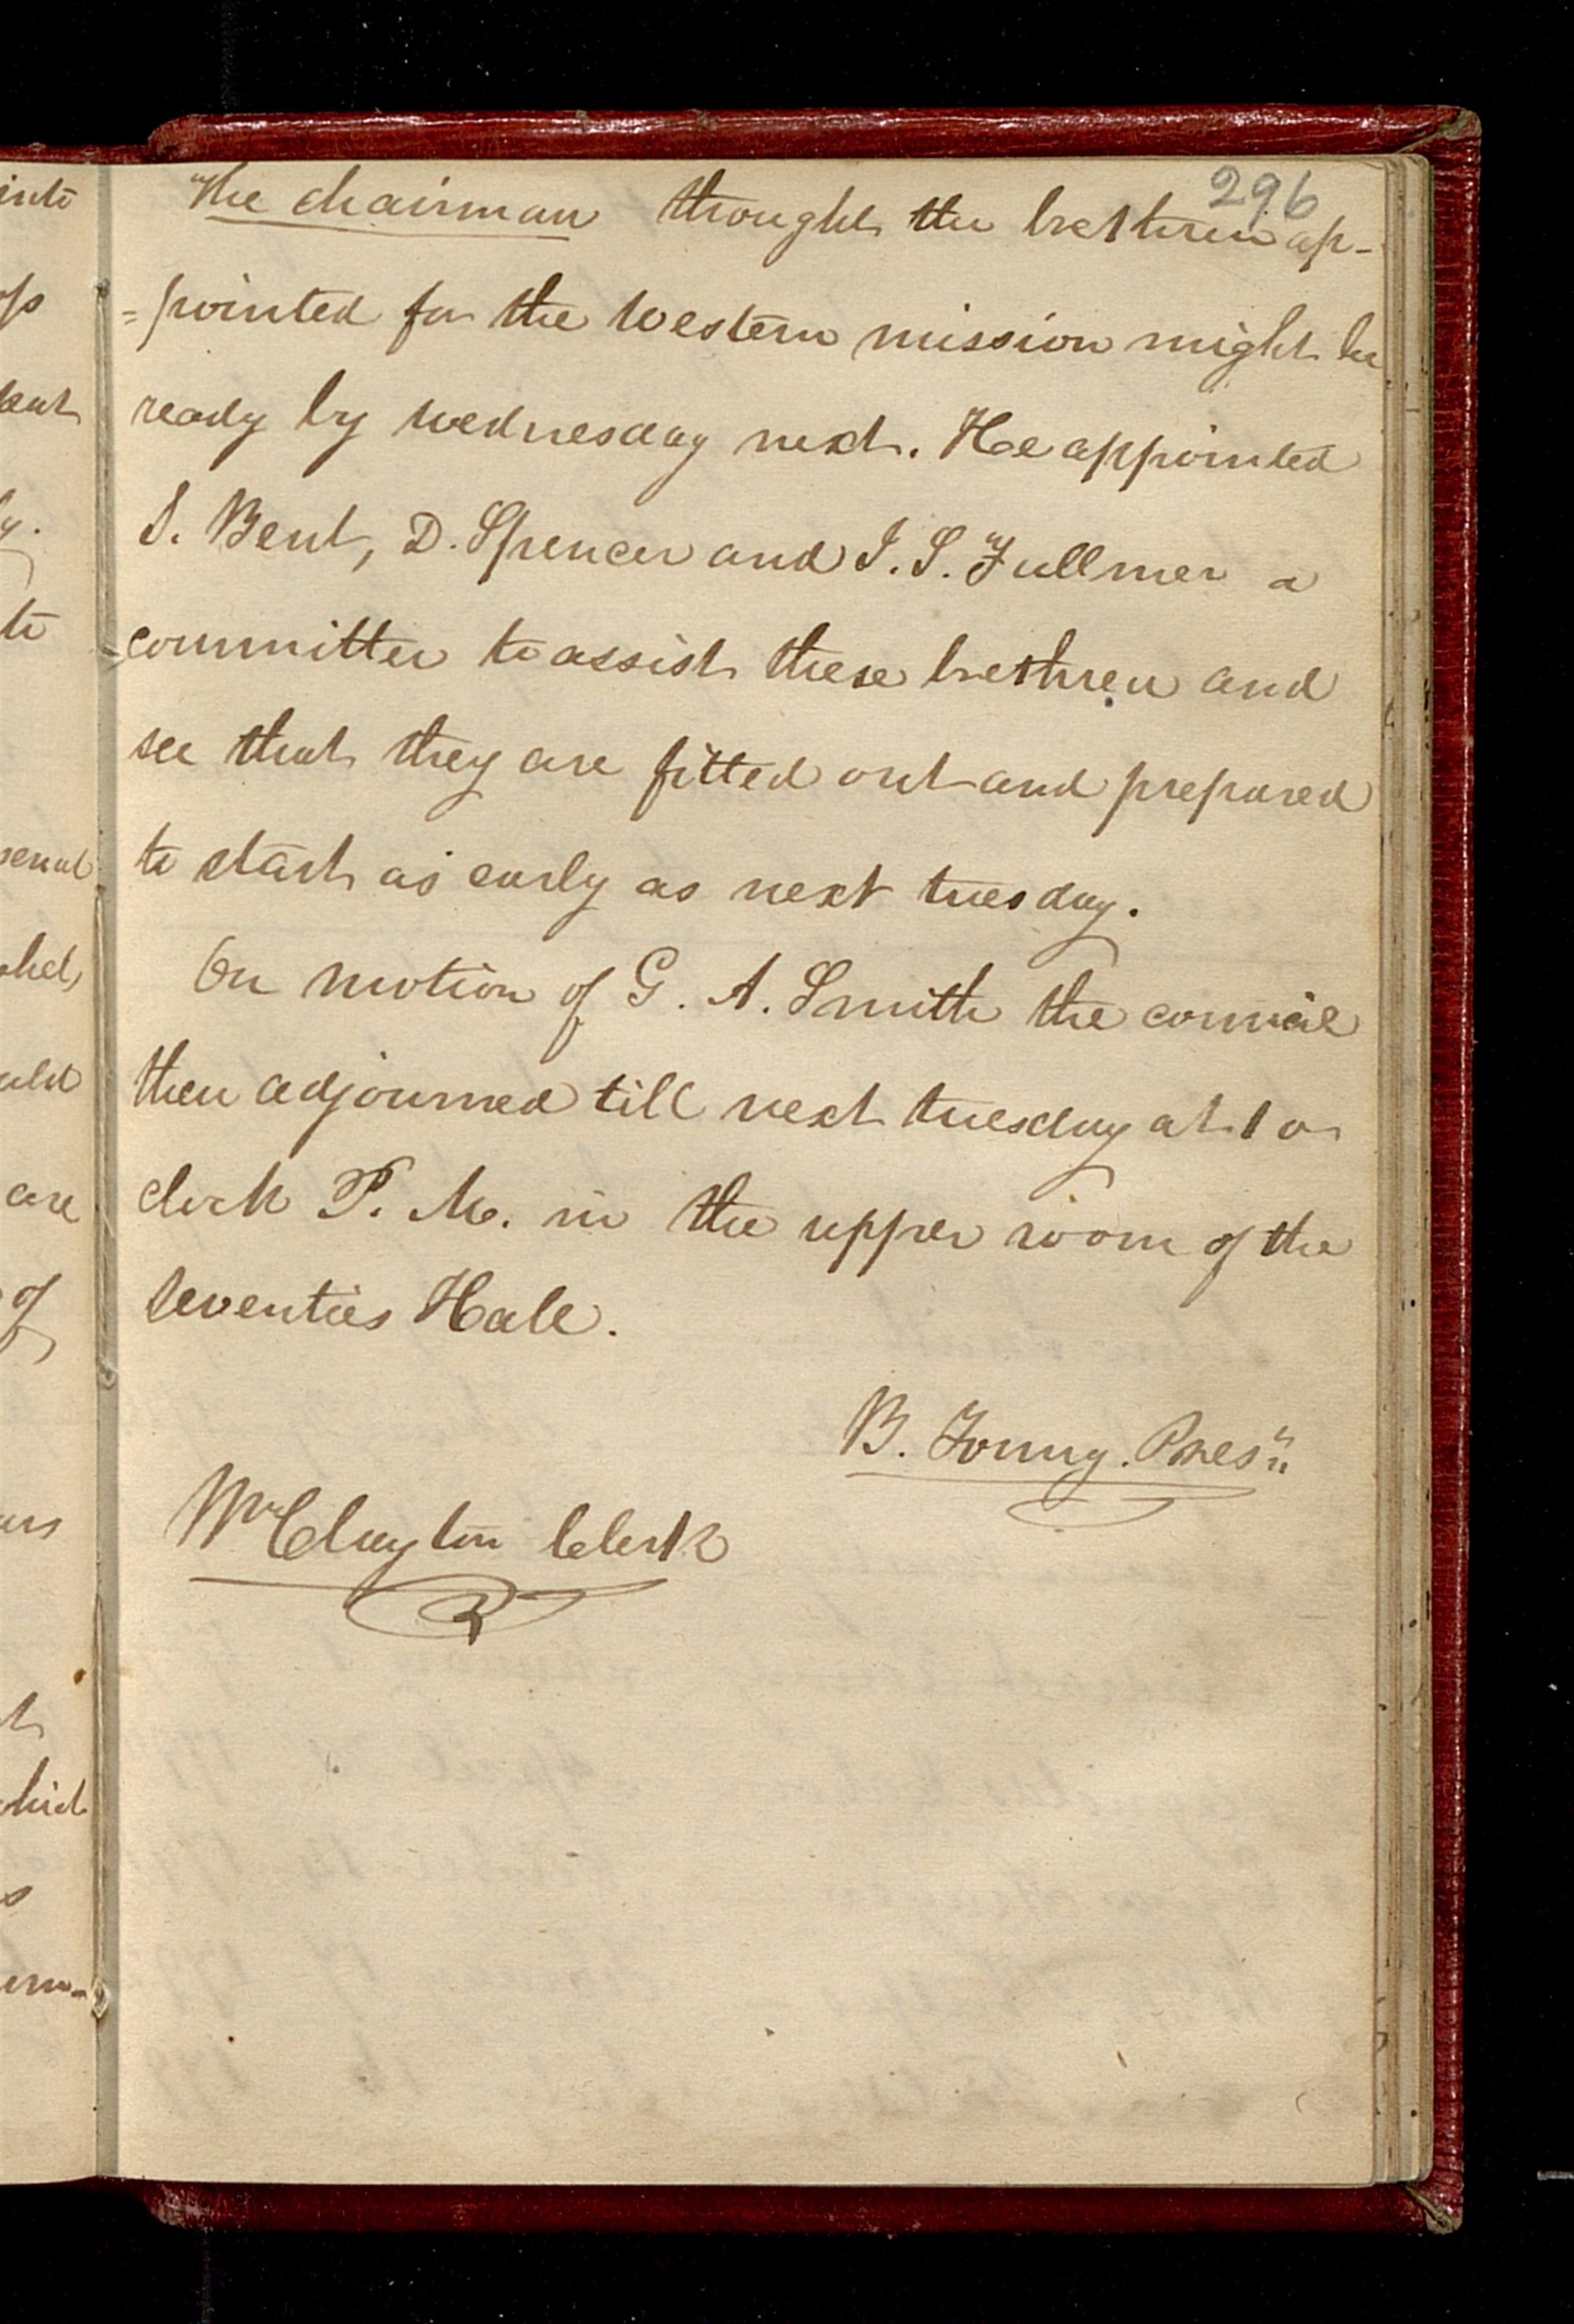 296
The chairman thought the brethren ap-
=pointed for the Western mission might be
ready by wednesday next. He appointed
S. Bent, D. Spencer and J. S. Fullmer a
committee to assist these brethren and
see that they are fitted out and prepared
to start as early as next tuesday.
On motion of G. A. Smith the council
then adjourned till next tuesday at 1 o
clock P. M. in the upper room of the
Seventies Hall.
B. Young. Pres.
Wm Clayton Clerk